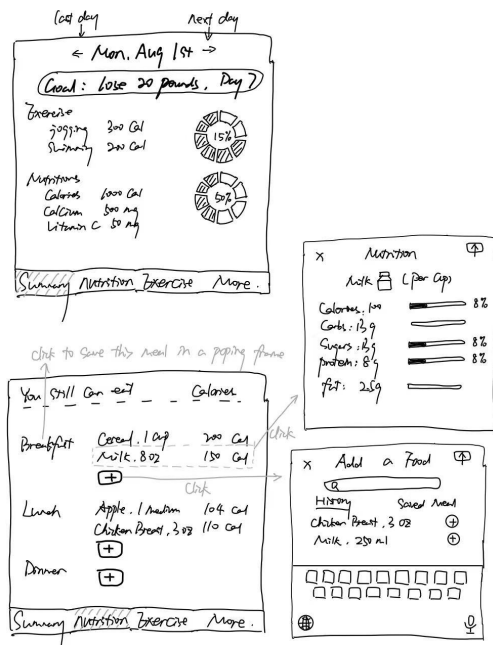 last day next day
← Mon, Aug 1st →
Goal: Lose 20 pounds, Day 7
Exercise
jogging 300 Cal
Swimming 200 Cal
15%
Nutritions
Calories 1000 Cal
Calcium 500 mg
Vitamin C 50 mg
50%
Summary Nutrition Exercise More.
click to save this meal in a poping frame
You still can eat Calories
Breakfast Cereal. 1 cup 200 Cal
Milk. 8 oz 150 Cal
+
Click
Click
Lunch Apple. 1 medium 104 Cal
Chicken Breast, 3 oz 110 Cal
+
Dinner
+
Summary Nutrition Exercise More.
× Nutrition
Milk (per cup)
Calories: 100 8%
Carb: 13g
Sugars: 13g 8%
protein: 8g 8%
fat: 2.5g
× Add a Food
History Saved Meal
Chicken Breast, 3 oz +
Milk. 250 ml +